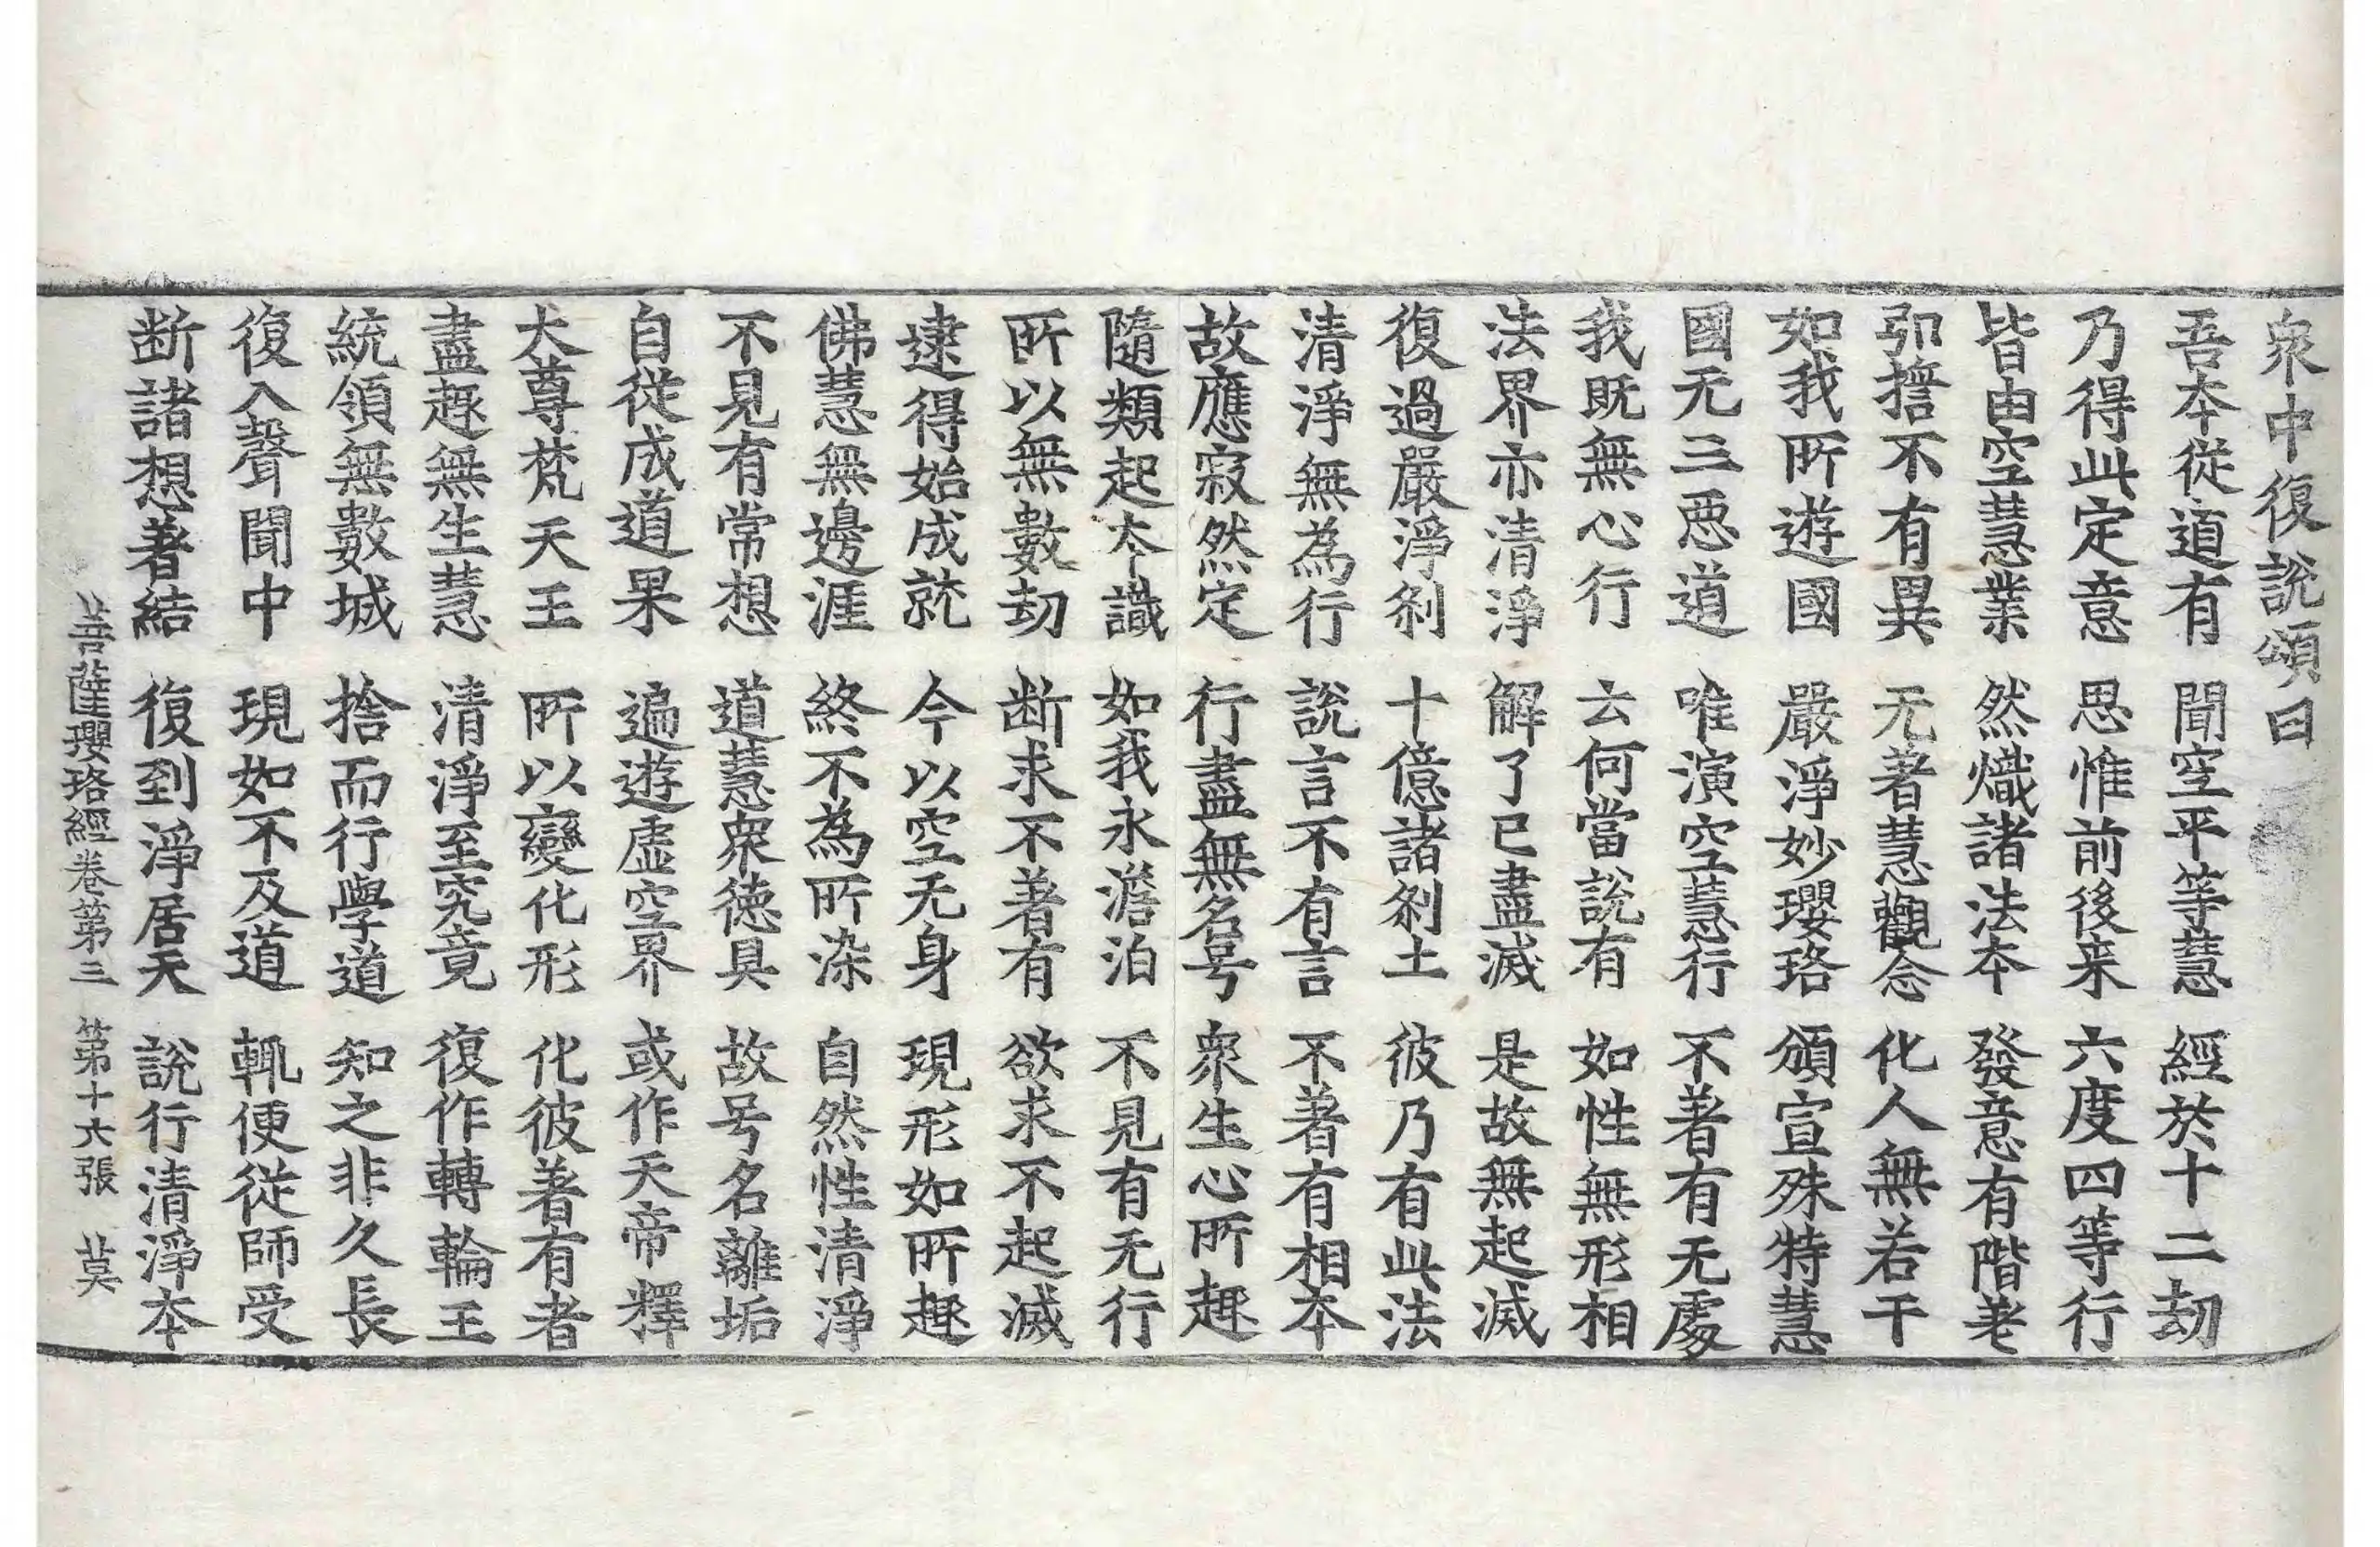 衆中復說頌曰
吾本從道有　聞空平等慧　經於十二劫
乃得此定意　思惟前後来　六度四等行
皆由空慧業　然熾諸法本　發意有階差
弘誓不有異　无著慧觀念　化人無若干
如我所遊國　嚴淨妙瓔珞　頒宣殊特慧
國无三惡道　唯演空慧行　不著有无處
我既無心行　云何當說有　如性無形相
法界亦清淨　解了已盡滅　是故無起滅
復過嚴淨刹　十億諸刹土　彼乃有此法
清淨無為行　說言不有言　不著有相本
故應寂然定　行盡無名号　衆生心所趣
隨類起本識　如我永澹泊　不見有无行
所以無數劫　断求不著有　欲求不起滅
逮得始成就　今以空无身　現形如所趣
佛慧無邊涯　終不為所染　自然性清淨
不見有常想　道慧衆徳具　故号名離垢
自從成道果　遍遊虛空界　或作天帝釋
大尊梵天王　所以變化形　化彼著有者
盡趣無生慧　清淨至究竟　復作轉輪王
統領無數城　捨而行學道　知之非久長
復入聲聞中　現如不及道　輒便從師受
断諸想著結　復到淨居天　說行清淨本
菩薩瓔珞經卷第三　第十六張　莫